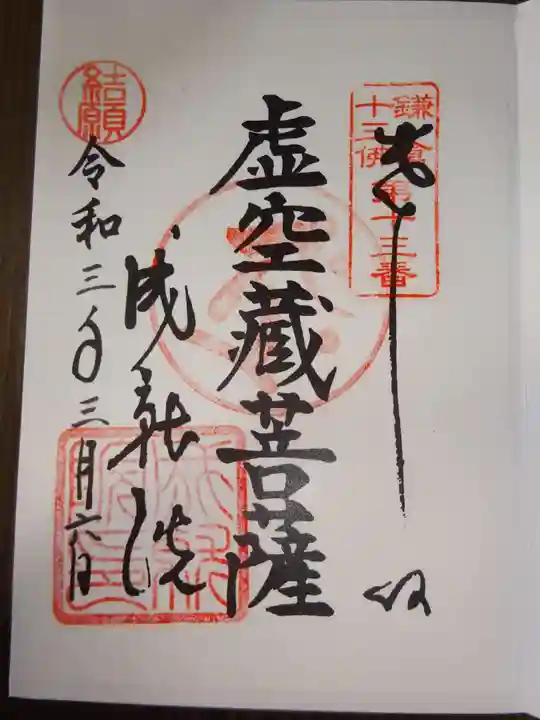 鎌倉
十三佛
第十三番
奉拝
虚空蔵菩薩
成就院
結願
令和三年三月六日